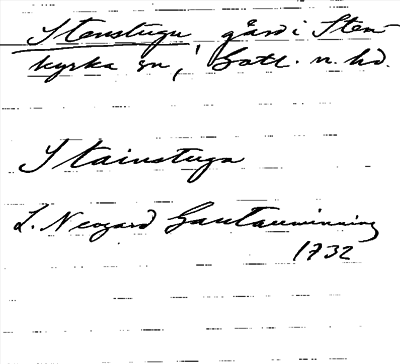 Stenstugu, gård i Sten-
kyrka sn, Gotl. n. hd.
Stainstuga
L. Neogard Gautauminning
1732